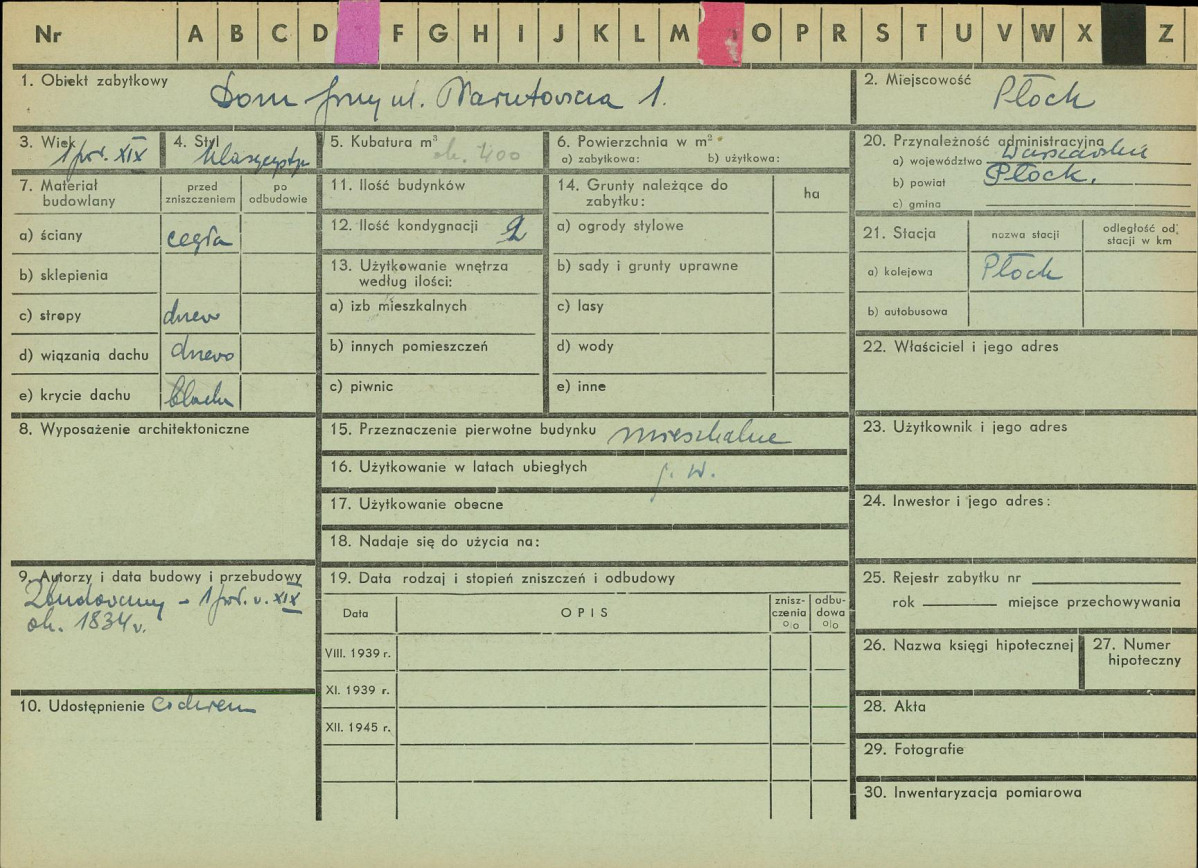 Nr A B C D F G H I J K L M O P R S T U V W X Z
1. Obiekt zabytkowy Dom przy ul. Narutowicza 1.
2. Miejscowość Płock
3. Wiek 1 poł. XIX
4. Styl klasycyst.
5. Kubatura m³ ok. 400
6. Powierzchnia w m²
a) zabytkowa: b) użytkowa:
20. Przynależność administracyjna
a) województwo Warszawskie
b) powiat Płock.
c) gmina
7. Materiał budowlany
przed zniszczeniem
po odbudowie
a) ściany cegła
b) sklepienia
c) stropy drewo
d) wiązania dachu drewo
e) krycie dachu blacha
11. Ilość budynków
12. Ilość kondygnacji 2
13. Użytkowanie wnętrza
według ilości:
a) izb mieszkalnych
b) innych pomieszczeń
c) piwnic
14. Grunty należące do
zabytku:
ha
a) ogrody stylowe
b) sady i grunty uprawne
c) lasy
d) wody
e) inne
21. Stacja
nazwa stacji
odległość od
stacji w km
a) kolejowa Płock
b) autobusowa
22. Właściciel i jego adres
8. Wyposażenie architektoniczne
15. Przeznaczenie pierwotne budynku mieszkalne
16. Użytkowanie w latach ubiegłych j. w.
17. Użytkowanie obecne
18. Nadaje się do użycia na:
23. Użytkownik i jego adres
24. Inwestor i jego adres:
9. Autorzy i data budowy i przebudowy
Zbudowany – 1 poł. w. XIX
ok. 1834 r.
10. Udostępnienie
19. Data rodzaj i stopień zniszczeń i odbudowy
Data
OPIS
znisz-
czenia
o|o
odbu-
dowa
o|o
VIII. 1939 r.
XI. 1939 r.
XII. 1945 r.
25. Rejestr zabytku nr
rok miejsce przechowywania
26. Nazwa księgi hipotecznej
27. Numer
hipoteczny
28. Akta
29. Fotografie
30. Inwentaryzacja pomiarowa